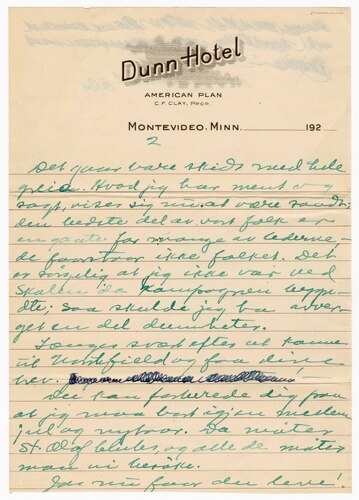 Dunn Hotel
AMERICAN PLAN
C. F. CLAY, PROP.
MONTEVIDEO, MINN. 192
2
Det gaar bare skids med hele
greia. Hvad jeg har ment og
sagt, viser sig nu at være sandt:
den bedste del av vort folk er
en gaate for mange av lederne.
De forstaar ikke folket. Det
er at jeg ikke var ved
Skolen da kampanjen begynd-
te; saa skulde jeg ha adver-
get en del dumheter.
Længes svært efter at komme
til Northfield og faa dine
brev.
Du kan forberede dig paa
at jeg maa bort igjen mellem
jul og nytaar. Da møter
St. Olaf klubs, og alle de møter
maa vi besøke.
Jas nu faar du leve!